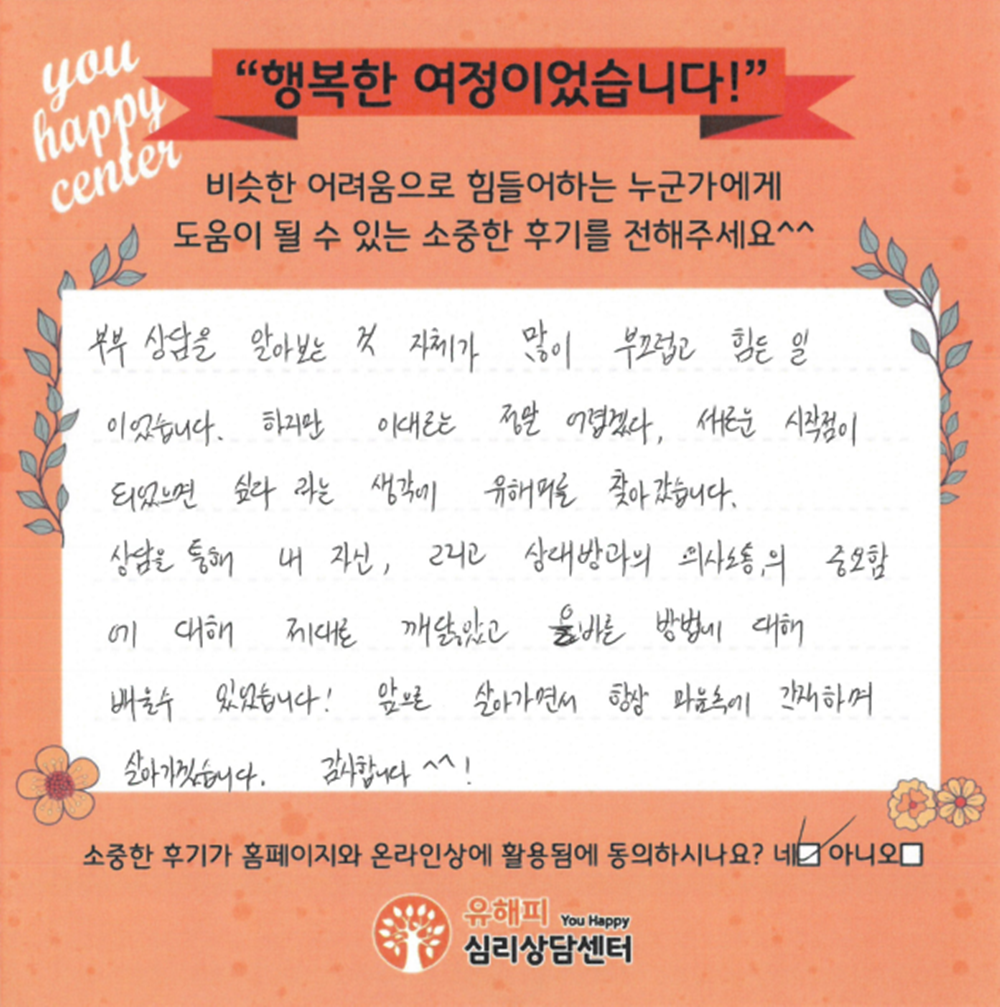 you
happy
center
“행복한 여정이었습니다!”
비슷한 어려움으로 힘들어하는 누군가에게
도움이 될 수 있는 소중한 후기를 전해주세요^^
부부 상담을 알아보는 것 자체가 많이 부끄럽고 힘든 일
이었습니다. 하지만 이대로는 정말 어렵겠다, 새로운 시작점이
되었으면 싶다 라는 생각에 유해피를 찾아갔습니다.
상담을 통해 내 자신, 그리고 상대방과의 의사소통의 중요함
에 대해 제대로 깨달았고 올바른 방법에 대해
배울수 있었습니다! 앞으로 살아가면서 항상 마음속에 간직하며
살아가겠습니다. 감사합니다 ^^!
소중한 후기가 홈페이지와 온라인상에 활용됨에 동의하시나요? 네☑ 아니오☐
유해피 You Happy
심리상담센터